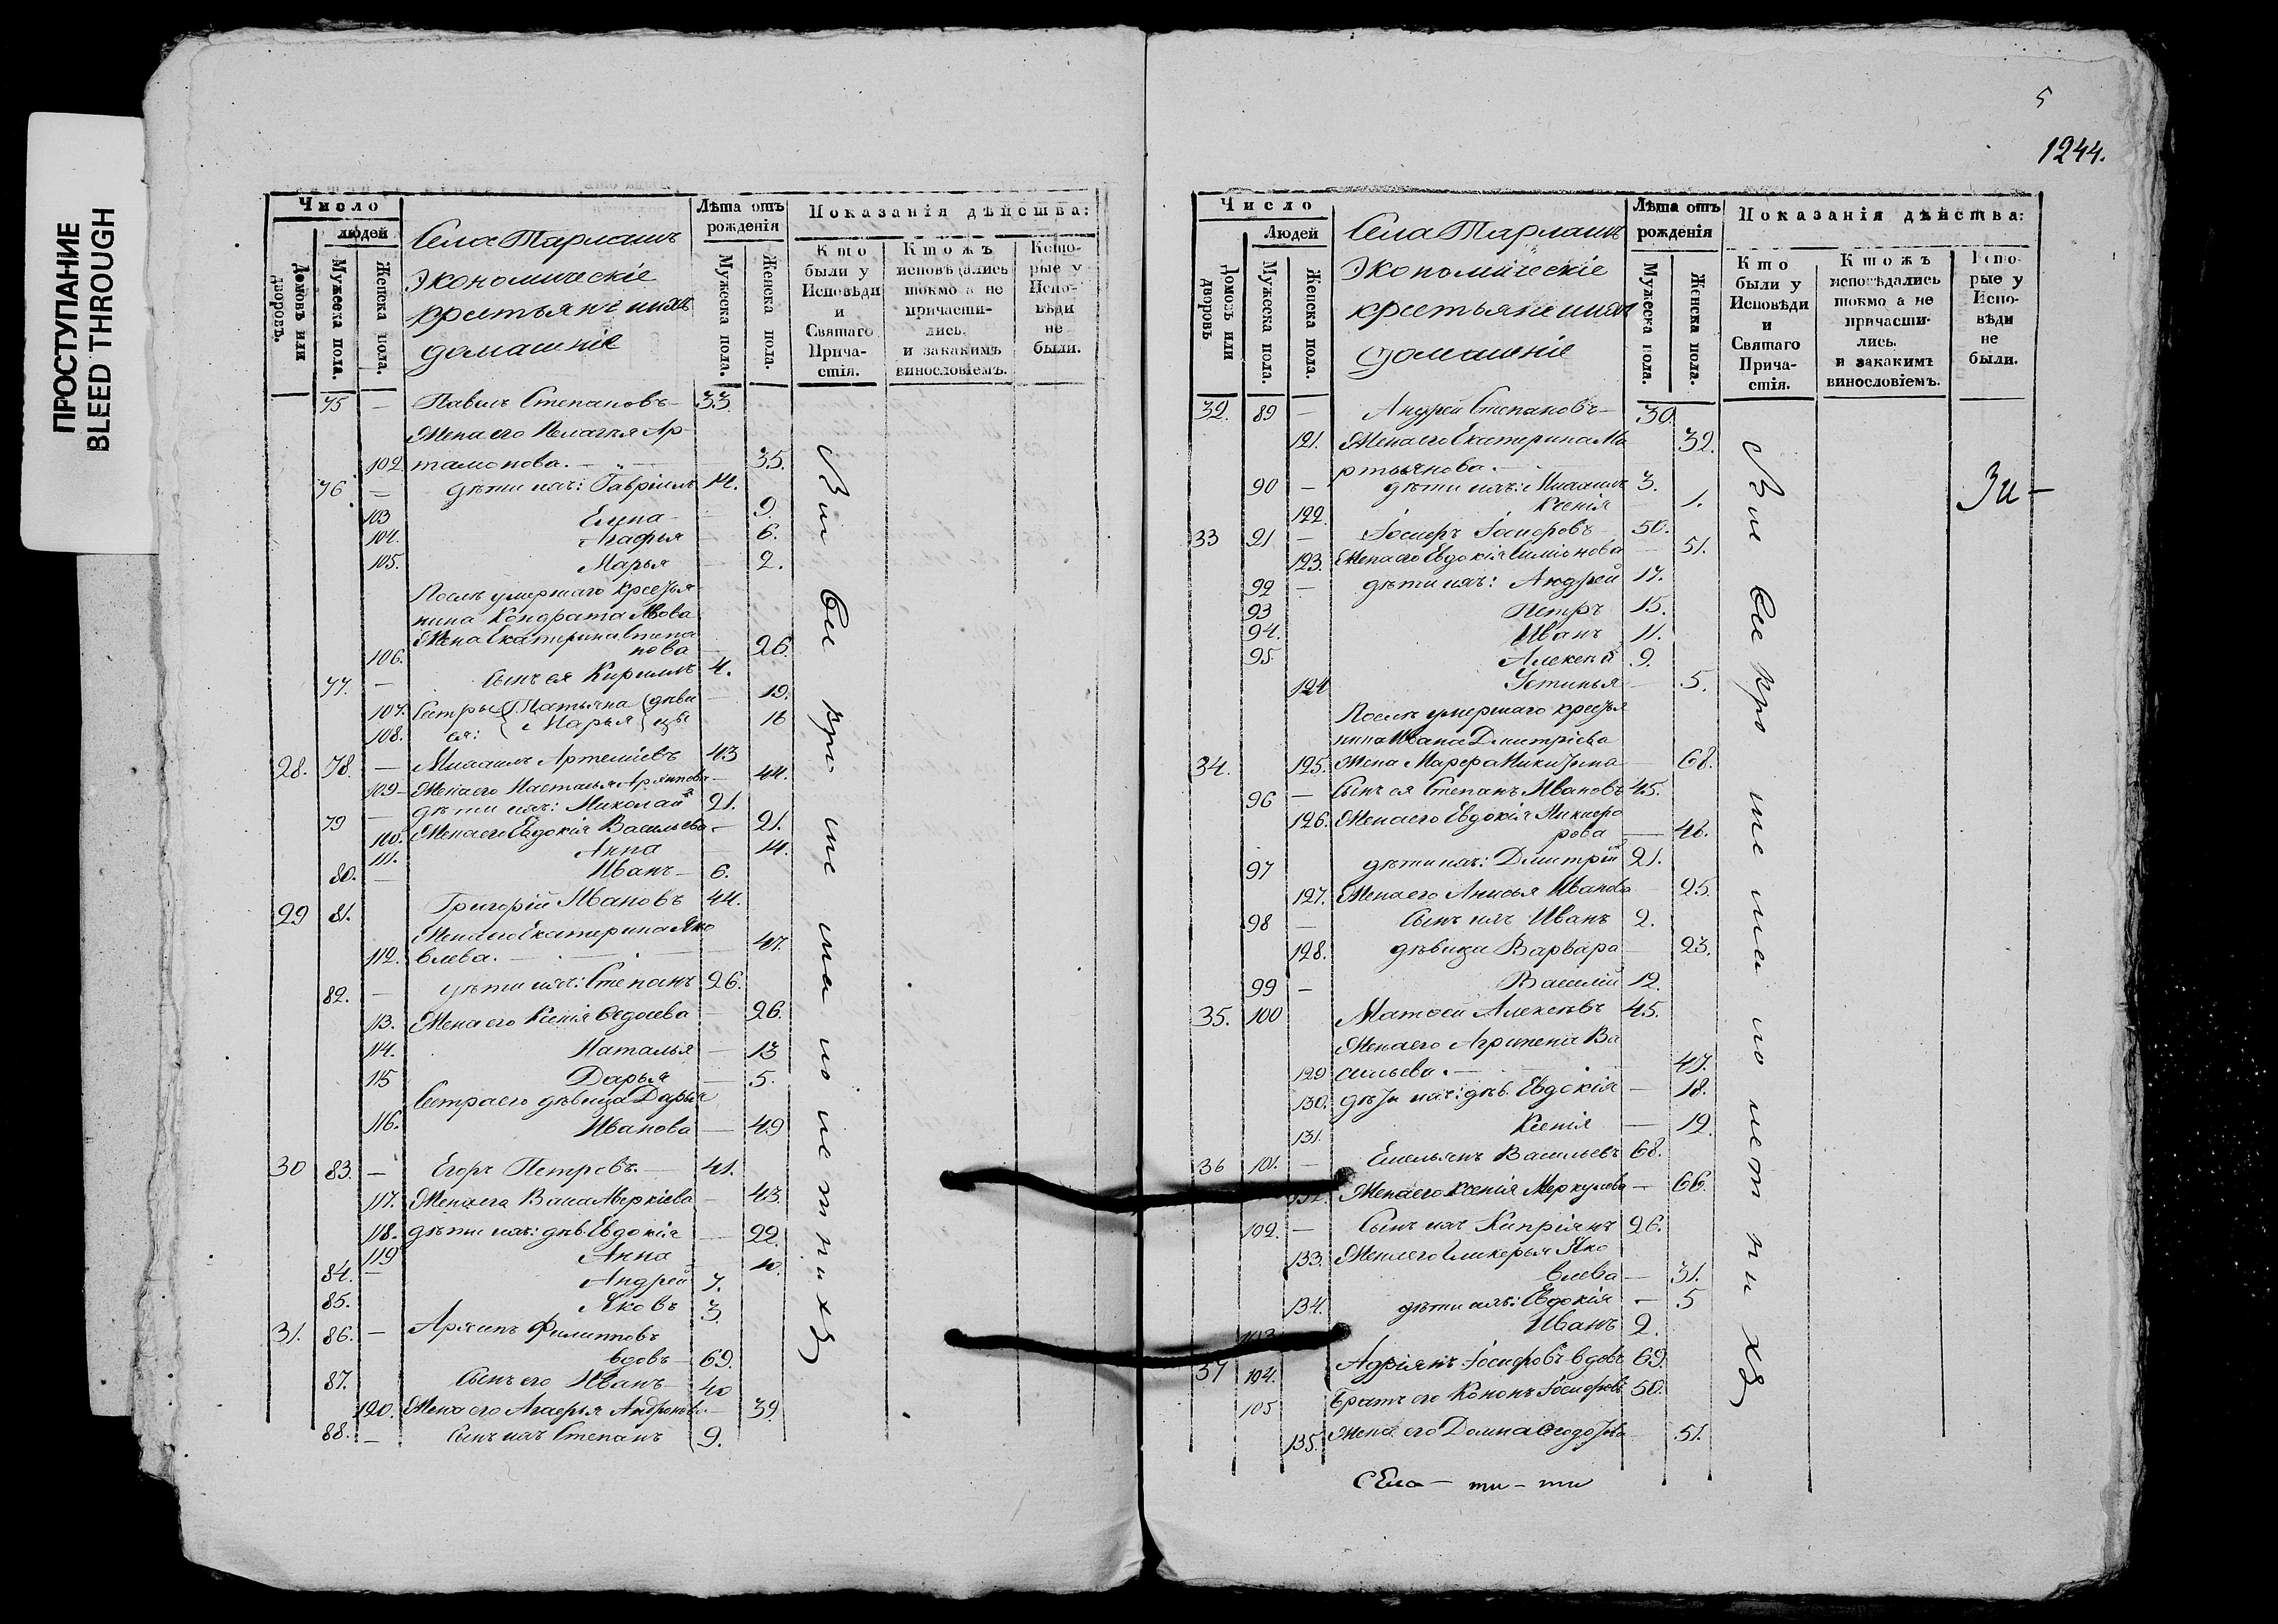 ПРОСТУПАНИЕ
BLEED THROUGH
Число
людей
Домовъ или дворовъ.
Мужеска пола.
Женска пола.
Села Тарлашъ
Экономическіе
крестьяне ихъ
домашніе
Лѣта отъ рожденія
Мужеска пола.
Женска пола.
Показанія дѣйства:
Кто были у Исповѣди и Святаго Причастія.
Ктожъ исповѣдались токмо а не причастились. и закакимъ винословіемъ.
Которые у Исповѣди не были.
75 — Павелъ Степановъ — 33.
Жена его Пелагея Ар-
102 тамонова. — 35.
76 — дѣти ихъ: Гавріилъ 14.
103 Елена 9.
104. Агафья — 6.
105. Марья — 2.
Послѣ умершаго крестья
нина Кондрата Львова
Жена Екатерина Степа
106. нова — 26.
77. — Сынъ ея Кирилъ 4.
107. Сестры Татьяна дѣви — 19.
108. ея: Марья цы 16
28. 78. — Михаилъ Артеміевъ 43
109 — Жена его Настасья Архипова — 44.
79 — дѣти ихъ: Николай 21.
110. Жена его Евдокія Васильева — 21.
111. Анна — 14.
80. — Иванъ — 6.
29 81. Григорій Ивановъ 44.
Жена его Екатерина Яко
112. влева. — 47.
82. — дѣти ихъ: Степанъ 26.
113. Жена его Ксенія Ѳедосева — 26.
114. Наталья — 13
115 Дарья — 5.
Сестра его дѣвица Дарья
116. Иванова — 49
30 83. — Егоръ Петровъ. — 41.
117. Жена его Васа Аверкіева — 43.
118. дѣти ихъ: дѣв. Евдокія — 22.
119 Анна 10.
84. — Андрей 7.
85. Яковъ 3
31. 86. — Архипъ Филипповъ
вдовъ — 69.
87. Сынъ его Иванъ — 40
120. Жена его Агафья Андронова — 39
88. — Сынъ ихъ Степанъ 9.
5
1244.
Число
Людей
Домовъ или дворовъ
Мужеска пола.
Женска пола.
Села Тарлашъ
Экономическіе
крестьяне ихъ
домашніе
Лѣта отъ рожденія
Мужеска пола.
Женска пола.
Показанія дѣйства:
Кто были у Исповѣди и Святаго Причастія.
Ктожъ исповѣдались токмо а не причастились. и закакимъ винословіемъ.
Которые у Исповѣди не были.
32. 89 — Андрей Степановъ — 30.
121. Жена его Екатерина Ма 32.
ртьянова. —
90 — дѣти ихъ: Михаилъ 3.
122. Ксенія 1.
33 91 — Іосифъ Іосифовъ — 50.
123. Жена его Евдокія Симіонова — 51.
92 — дѣти ихъ: Андрей 17.
93 Петръ 15.
94. Иванъ 11.
95. Алексѣй 9.
124 Устинья — 5.
Послѣ умершаго крестья
нина Ивана Дмитріева
34. 125. Жена Марфа Никитина — 68.
96 — Сынъ ея Степанъ Ивановъ 45.
126. Жена его Евдокія Никифо
рова — 48.
97 дѣти ихъ: Дмитрій 21.
127. Жена его Анисья Иванова 25
98 — Сынъ ихъ Иванъ 2.
128. дѣвица Варвара — 23.
99 — Василій 12.
35. 100 Матѳей Алексѣевъ 45.
Жена его Агрипена Ва
129 сильева. — 47.
130. дѣти ихъ: дѣв. Евдокія — 18.
131. Ксенія — 12.
36 101. — Емельянъ Васильевъ 68.
132. Жена его Ксенія Меркулева — 66.
102. — Сынъ ихъ Кипріянъ 26.
133. Жена его Гликерья Яко
влева — 31.
134. дѣти ихъ: Евдокія — 5
103 Иванъ 2.
37 104. Адріянъ Іосифовъ вдовъ 69.
105 Братъ его Кононъ Іосифовъ 50.
135. Жена его Домна Ѳедотова 51.